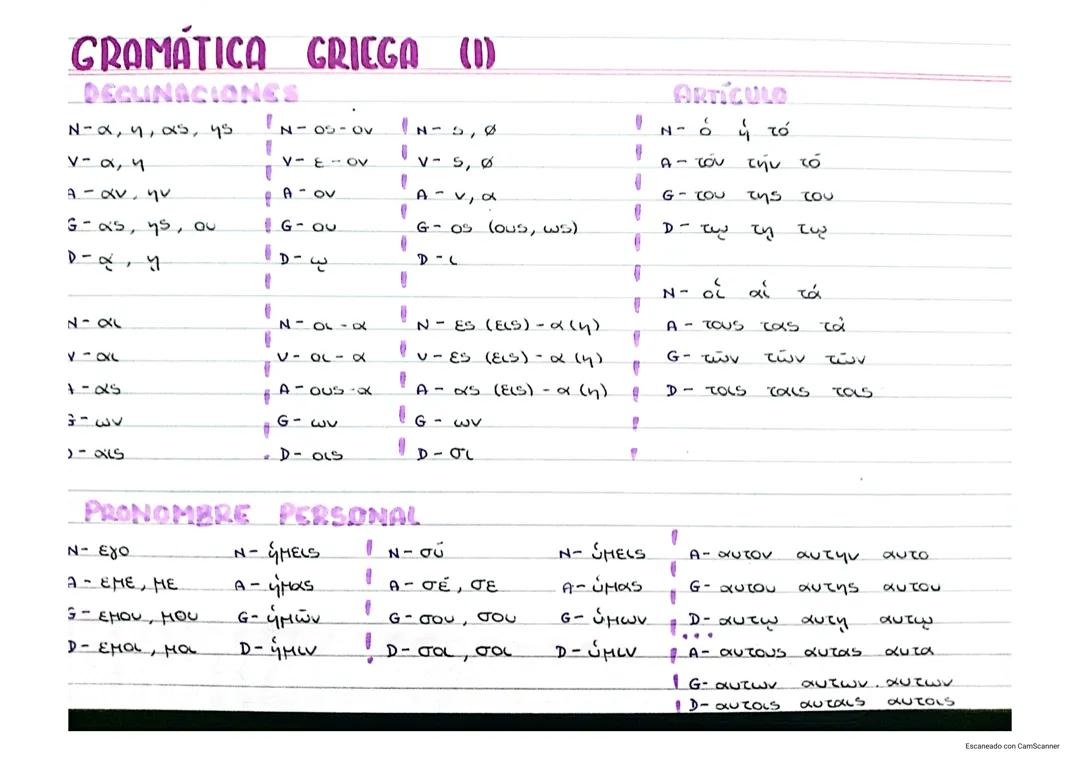 GRAMÁTICA GRIEGA (I)
DECLINACIONES
N- α, η, ας, ης
V- α, η
A- αν, ην
G- ας, ης, ου
D- ᾳ, ῃ
N- αι
V- αι
A- ας
G- ων
D- αις
N- ος - ον
V- ε - ον
A- ον
G- ου
D- ῳ
N- οι - α
V- οι - α
A- ους - α
G- ων
D- οις
N- ς, Ø
V- ς, Ø
A- ν, α
G- ος (ους, ως)
D- ι
N- ες (εις) - α (η)
V- ες (εις) - α (η)
A- ας (εις) - α (η)
G- ων
D- σι
ARTÍCULO
N- ὁ ἡ τό
A- τόν τήν τό
G- του της του
D- τῳ τῃ τῳ
N- οἱ αἱ τά
A- τους τας τὰ
G- τῶν τῶν τῶν
D- τοις ταις τοις
PRONOMBRE PERSONAL
N- εγο
A- εμε, με
G- εμου, μου
D- εμοι, μοι
N- ἡμεις
A- ἡμας
G- ἡμῶν
D- ἡμιν
N- σύ
A- σέ, σε
G- σου, σου
D- σοι, σοι
N- ὑμεις
A- ὑμας
G- ὑμων
D- ὑμιν
A- αυτον αυτην αυτο
G- αυτου αυτης αυτου
D- αυτῳ αυτῃ αυτῳ
A- αυτους αυτας αυτα
G- αυτων αυτων. αυτων
D- αυτοις αυταις αυτοις
Escaneado con CamScanner